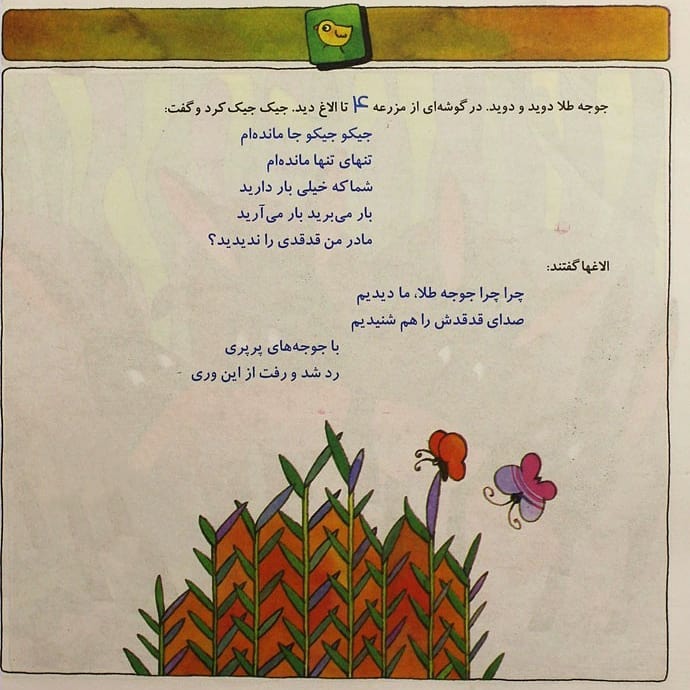 جوجه طلا دوید و دوید. در گوشه‌ای از مزرعه ۴ تا الاغ دید. جیک جیک کرد و گفت:
جیکو جیکو جا مانده‌ام
تنهای تنها مانده‌ام
شما که خیلی بار دارید
بار می‌برید بار می‌آرید
مادر من قدقدی را ندیدید؟
الاغها گفتند:
چرا چرا جوجه طلا، ما دیدیم
صدای قدقدش را هم شنیدیم
با جوجه‌های پرپری
رد شد و رفت از این وری